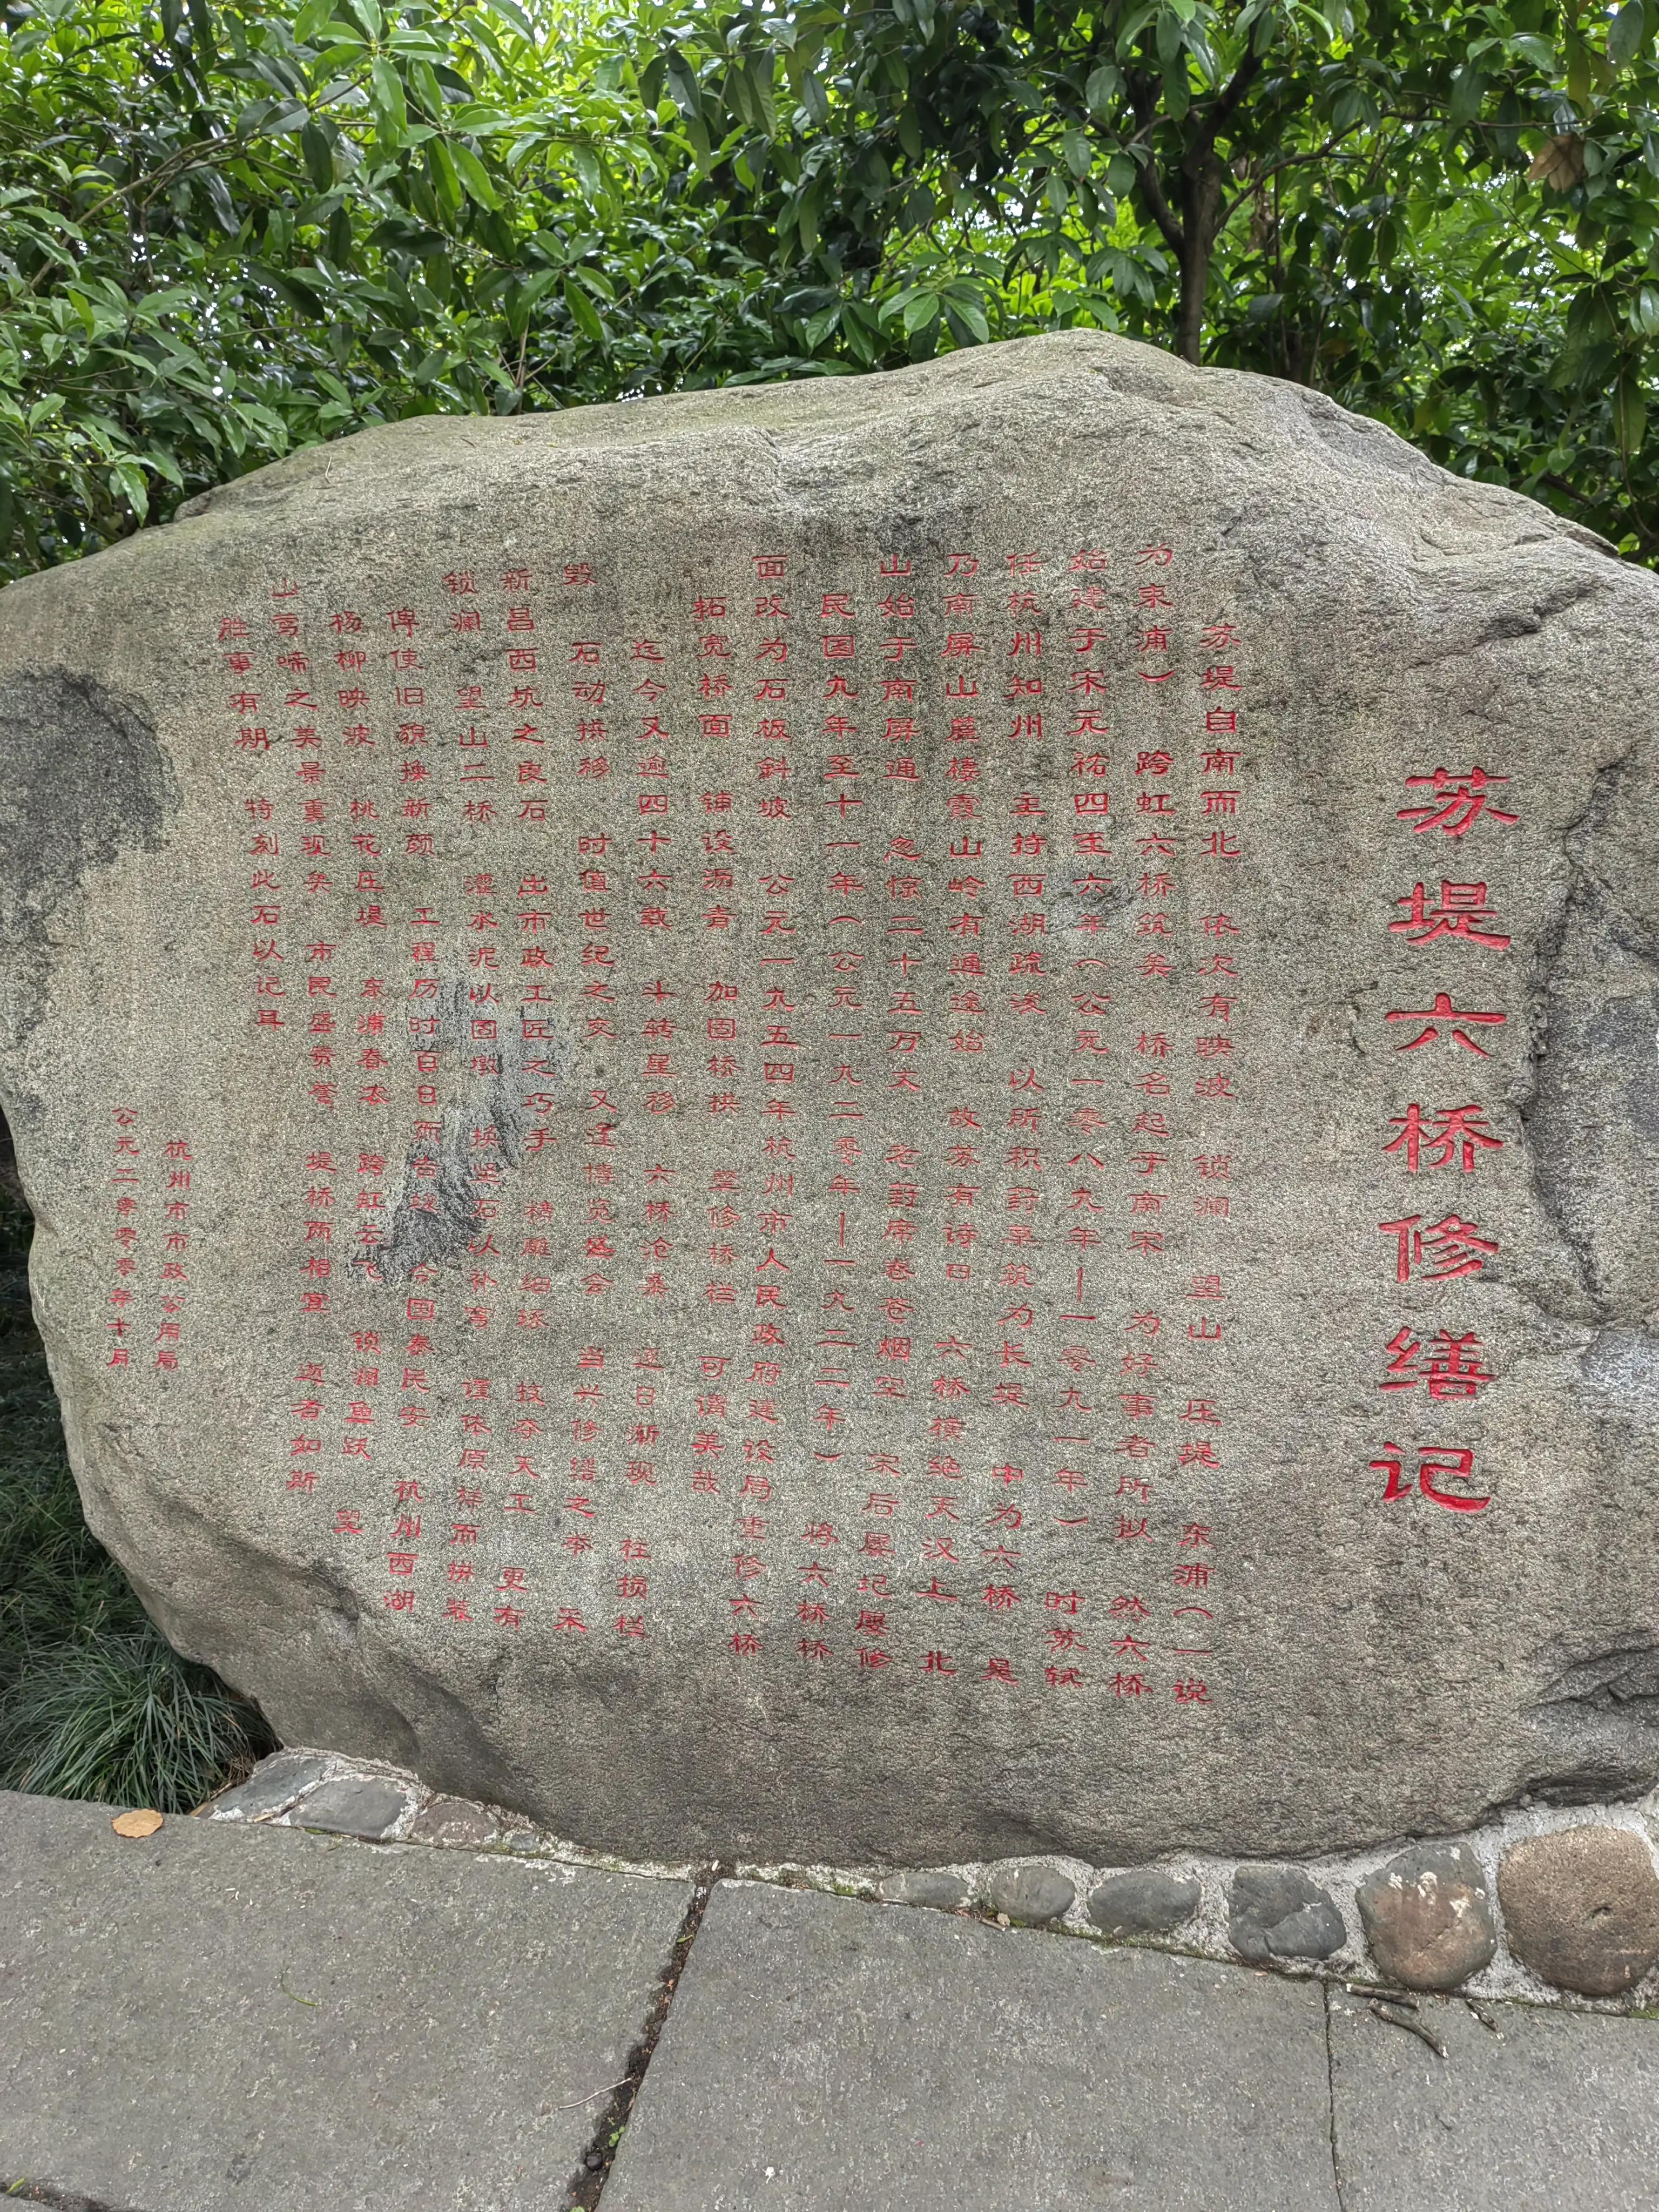 苏堤六桥修缮记
苏堤自南而北 依次有映波 锁澜 望山 压堤 东浦（一说
为束浦） 跨虹六桥筑矣 桥名起于南宋 为好事者所拟 然六桥
始建于宋元祐四至六年（公元一零八九年—一零九一年） 时苏轼
任杭州知州 主持西湖疏浚 以所积葑草筑为长堤 中为六桥 是
乃南屏山麓栖霞山岭有通途始 故苏有诗曰 六桥横绝天汉上 北
山始于南屏通 忽惊二十五万丈 老葑席卷苍烟空 宋后屡圮屡修
民国九年至十一年（公元一九二零年—一九二二年） 将六桥桥
面改为石板斜坡 公元一九五四年杭州市人民政府建设局重修六桥
拓宽桥面 铺设沥青 加固桥拱 整修桥栏 可谓美哉
迄今又逾四十六载 斗转星移 六桥沧桑 逐日渐现 柱损栏
毁 石动拱移 时值世纪之交 又逢博览盛会 当兴修缮之举 采
新昌西坑之良石 出市政工匠之巧手 精雕细琢 技夺天工 更有
锁澜 望山二桥 灌水泥以固墩 换坚石以补害 谨依原样而拼装
俾使旧貌换新颜 工程历时百日而告竣 今国泰民安 杭州西湖
杨柳映波 桃花压堤 东浦春浓 跨虹云飞 锁澜鱼跃 望
山莺啼之美景重现矣 市民盛赞誉 堤桥两相宜 逝者如斯
胜事有期 特刻此石以记耳
杭州市市政公用局
公元二零零零年十月